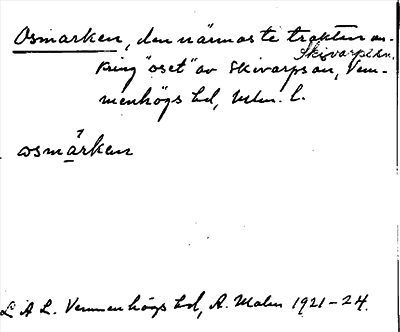 Osmarken, den närmaste trakten om-
Skivarps sn.
kring "oset" av Skivarpsån, Vem-
menhögs hd, Mlm. l.
osmarken
L A L. Vemmenhögs hd, A. Malm 1921-24.